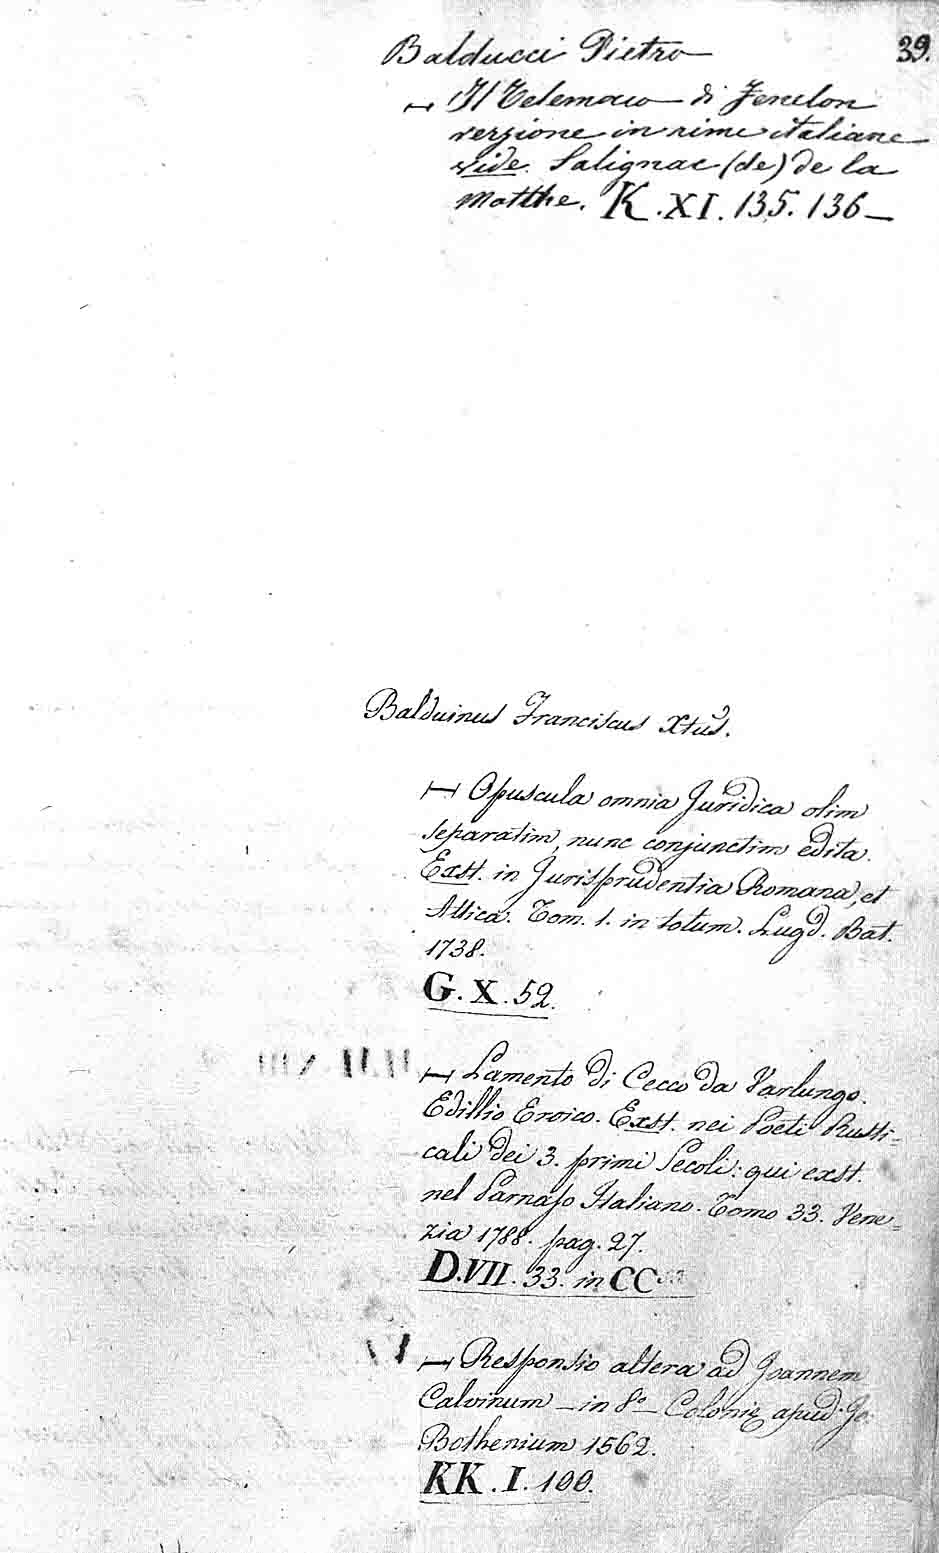 39.
Balducci Pietro
Il Telemaco di Fenelon
versione in rime italiane
vide. Salignac (de) de la
Motthe. K.XI.135.136_
Balduinus Franciscus Xtus.
Opuscula omnia Juridica olim
separatim, nunc conjunctim edita.
Exst. in Jurisprudentia Romana, et
Attica. Tom. 1. in totum. Lugd. Bat.
1738.
G.X.52.
Lamento di Cecco da Varlungo.
Edillio Eroico. Exst. nei Poeti Rusti=
cali dei 3. primi Secoli: qui exst.
nel Parnaso Italiano. Tomo 33. Vene=
zia 1788. pag. 27.
D.VII.33. in CC
Responsio altera ad Joannem
Calvinum _ in 8.º _ Colonię apud Jo:
Bothenium 1562.
KK.I.100.